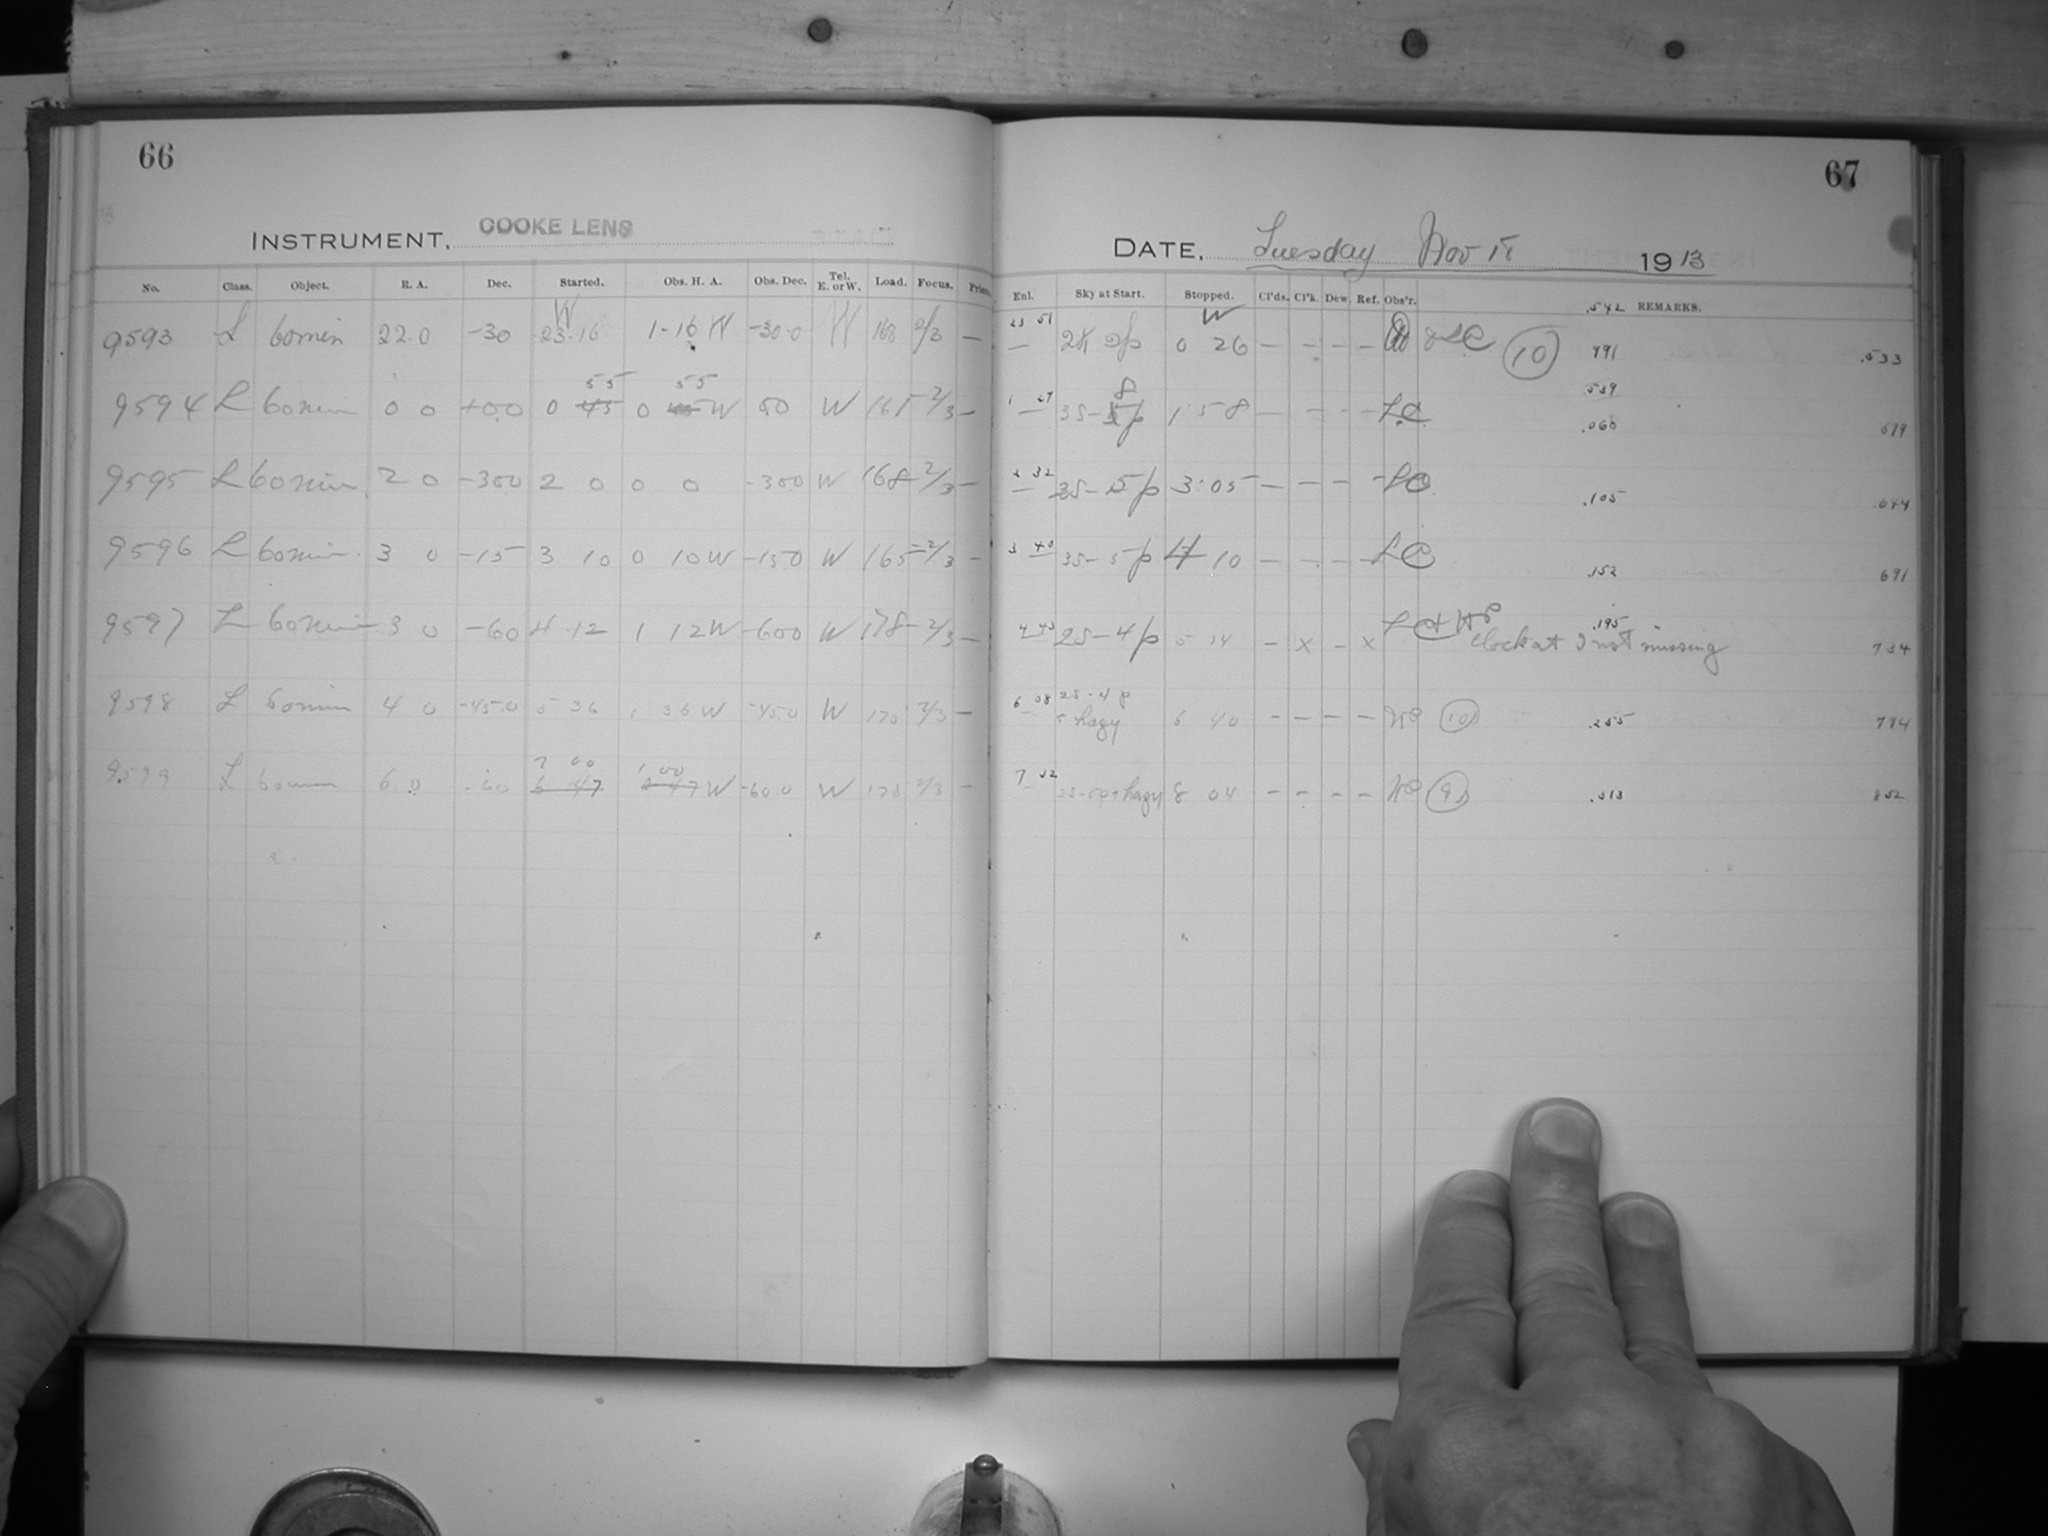 66
67
INSTRUMENT, COOKE LENS
DATE, Tuesday Nov 18 1913
No. Class. Object. R. A. Dec. Started. Obs. H. A. Obs. Dec. Tel. E. or W. Load. Focus. Prism.
Eul. Sky at Start. Stopped. Cl'ds. Cl'k. Dew. Ref. Obs'r. .542 REMARKS.
W W
9593 L 60 min 22.0 -30 23.16 1-16 W -30.0 W 168 2/3 — 23 51 — 0 26 — — — — LC 10 991 .533
55 55 8 .539
9594 L 60 min 0 0 +00 0 45 0 45 W 00 W 165 2/3 — 1 27 — 3s- p 1 58 — — — — LC .060 619
9595 L 60 min 2 0 -300 2 0 0 0 -300 W 168 2/3 — 2 32 — 3s-5p 3:05 — — — — LC .105 644
9596 L 60 min 3 0 -15 3 10 0 10 W -150 W 165 2/3 — 3 40 — 3s-5p 4 10 — — — — LC .152 691
9597 L 60 min 3 0 -60 4 12 1 12 W -600 W 178 2/3 — 4 43 — 2s-4p 5 14 - x - x LC + WP .195
Clock at missing 734
9598 L 60 min 4 0 -45.0 5 36 1 36 W -450 W 170 2/3 — 6 08 2s-4p
+ hazy 6 40 — — — — WP 10 .255 794
7 00 1 00
9599 L 60 min 6 0 -60 6 47 0 47 W -60.0 W 178 2/3 — 7 32 — 2s-5p + hazy 8 04 — — — — WP 9 .313 852